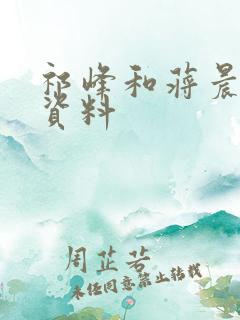 祁峰和蒋晨
资料
周芷若
未经同意禁止转载